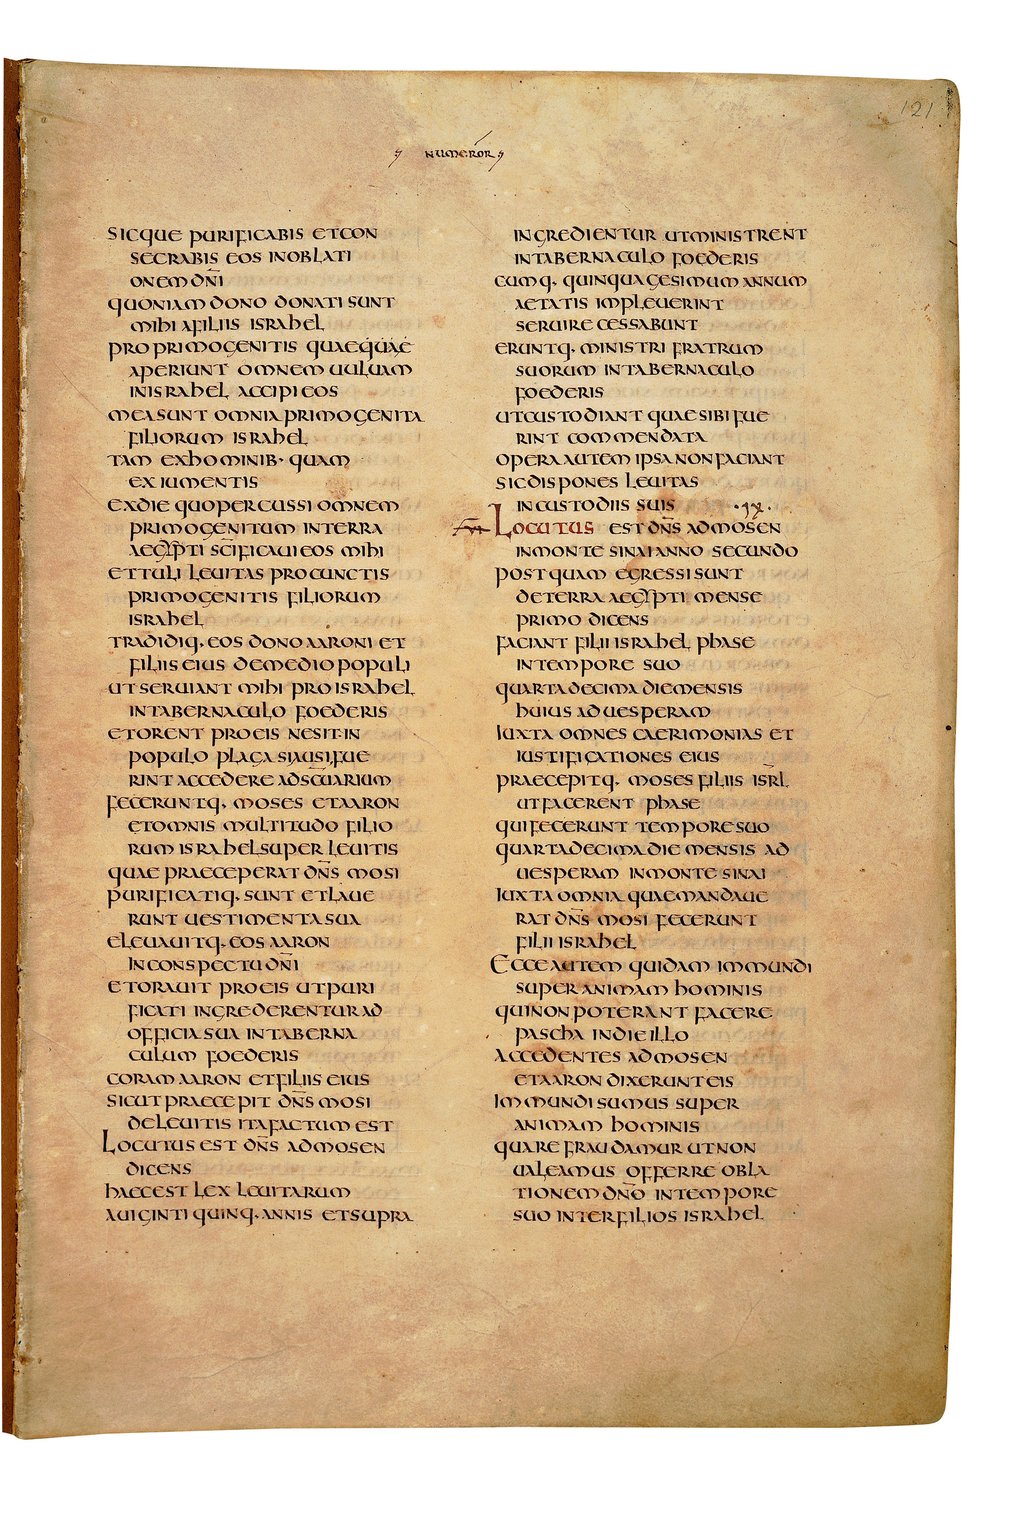 121
NUMEROR
SICQUE PURIFICABIS ET CON
SECRABIS EOS IN OBLATI
ONEM DN̄I
QUONIAM DONO DONATI SUNT
MIHI A FILIIS ISRAHEL
PRO PRIMOGENITIS QUAEQUAE
APERIUNT OMNEM UULUAM
IN ISRAHEL ACCIPI EOS
MEA SUNT OMNIA PRIMOGENITA
FILIORUM ISRAHEL
TAM EX HOMINIB· QUAM
EX IUMENTIS
EX DIE QUO PERCUSSI OMNEM
PRIMOGENITUM IN TERRA
AEGYPTI SC̄IFICAUI EOS MIHI
ET TULI LEUITAS PRO CUNCTIS
PRIMOGENITIS FILIORUM
ISRAHEL
TRADIDIQ· EOS DONO AARONI ET
FILIIS EIUS DE MEDIO POPULI
UT SERUIANT MIHI PRO ISRAHEL
IN TABERNACULO FOEDERIS
ET ORENT PRO EIS NE SIT IN
POPULO PLAGA SI AUSI FUE
RINT ACCEDERE AD SC̄UARIUM
FECERUNTQ· MOSES ET AARON
ET OMNIS MULTITUDO FILIO
RUM ISRAHEL SUPER LEUITIS
QUAE PRAECEPERAT DN̄S MOSI
PURIFICATIQ· SUNT ET LAUE
RUNT UESTIMENTA SUA
ELEUAUITQ· EOS AARON
IN CONSPECTU DN̄I
ET ORAUIT PRO EIS UT PURI
FICATI INGREDERENTUR AD
OFFICIA SUA IN TABERNA
CULUM FOEDERIS
CORAM AARON ET FILIIS EIUS
SICUT PRAECEPIT DN̄S MOSI
DE LEUITIS ITA FACTUM EST
LOCUTUS EST DN̄S AD MOSEN
DICENS
HAEC EST LEX LEUITARUM
A UIGINTI QUINQ· ANNIS ET SUPRA
INGREDIENTUR UT MINISTRENT
IN TABERNACULO FOEDERIS
CUMQ· QUINQUAGESIMUM ANNUM
AETATIS IMPLEUERINT
SERUIRE CESSABUNT
ERUNTQ· MINISTRI FRATRUM
SUORUM IN TABERNACULO
FOEDERIS
UT CUSTODIANT QUAE SIBI FUE
RINT COMMENDATA
OPERA AUTEM IPSA NON FACIANT
SIC DISPONES LEUITAS
IN CUSTODIIS SUIS
LOCUTUS EST DN̄S AD MOSEN
IN MONTE SINAI ANNO SECUNDO
POSTQUAM EGRESSI SUNT
DE TERRA AEGYPTI MENSE
PRIMO DICENS
FACIANT FILII ISRAHEL PHASE
IN TEMPORE SUO
QUARTA DECIMA DIE MENSIS
HUIUS AD UESPERAM
IUXTA OMNES CAERIMONIAS ET
IUSTIFICATIONES EIUS
PRAECEPITQ· MOSES FILIIS ISR̄L
UT FACERENT PHASE
QUI FECERUNT TEMPORE SUO
QUARTA DECIMA DIE MENSIS AD
UESPERAM IN MONTE SINAI
IUXTA OMNIA QUAE MANDAUE
RAT DN̄S MOSI FECERUNT
FILII ISRAHEL
ECCE AUTEM QUIDAM IMMUNDI
SUPER ANIMAM HOMINIS
QUI NON POTERANT FACERE
PASCHA IN DIE ILLO
ACCEDENTES AD MOSEN
ET AARON DIXERUNT EIS
IMMUNDI SUMUS SUPER
ANIMAM HOMINIS
QUARE FRAUDAMUR UT NON
UALEAMUS OFFERRE OBLA
TIONEM DN̄O IN TEMPORE
SUO INTER FILIOS ISRAHEL